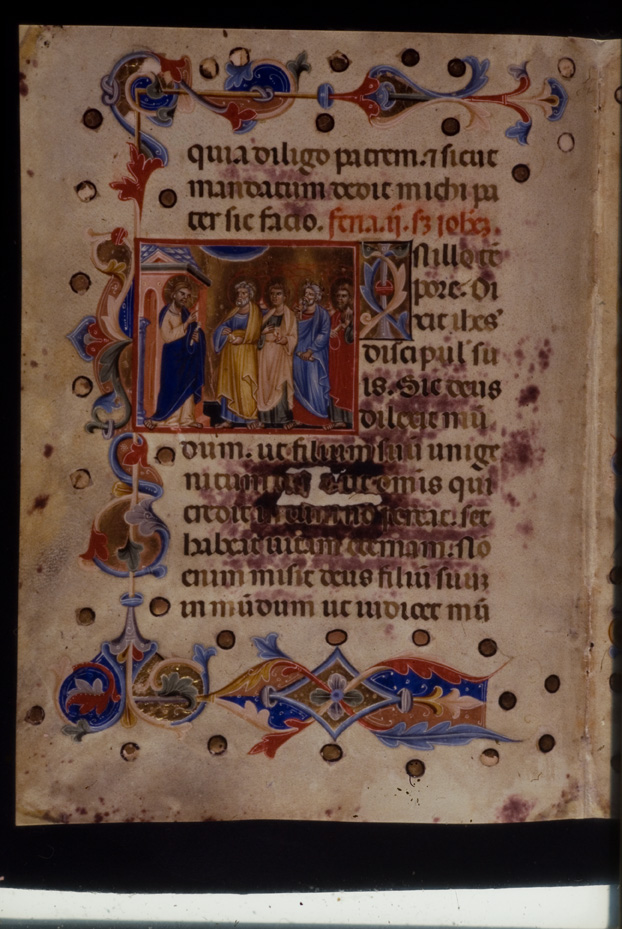 quia diligo patrem. ⁊ sicut
mandatum dedit michi pa
ter sic facio. feria. ij. sz iohez.
N illo tē
pore. Di
xit ihes'
discipul' su
is. Sic deus
dilexit mū
dum. ut filium suū unige
nitum omis qui
credit
habeat uitam eternam. Nō
enim misit deus filiū suum
in mūdum ut iudicet mū